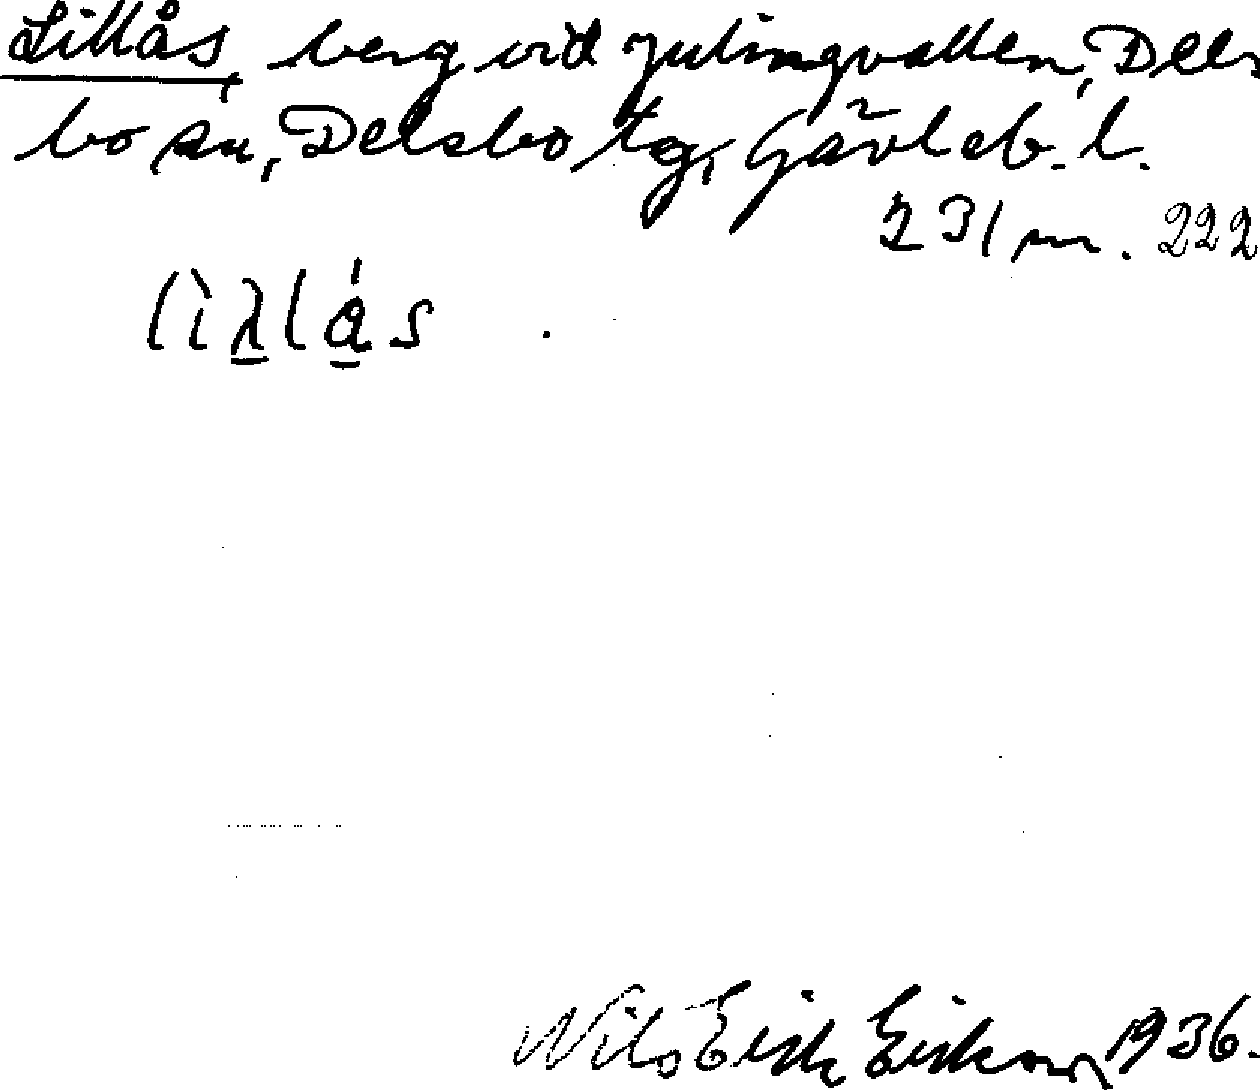 Lillås, berg vid Julingvallen, Dels
bo sn, Delsbo tg, Gävleb. l.
231 m. 222
lìλlás
Nils Erik Eriksson 1936.